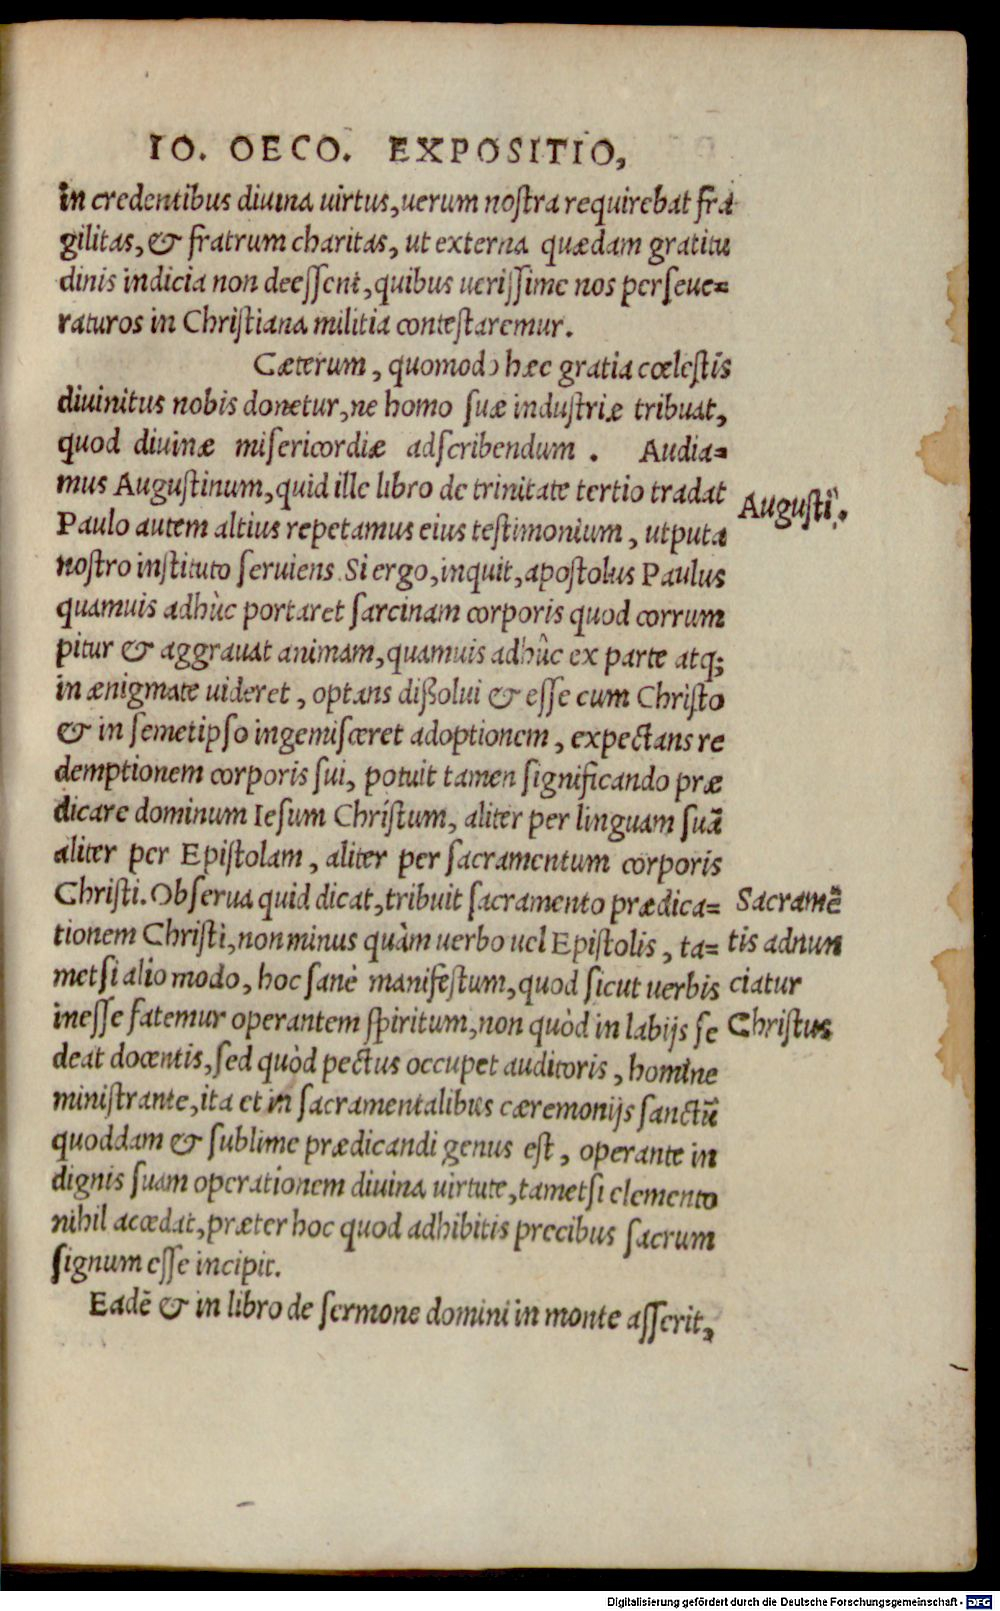 IO. OECO. EXPOSITIO,
in credentibus diuina uirtus, uerum noſtra requirebat fra
gilitas, & fratrum charitas, ut externa quædam gratitu
dinis indicia non deeſſent, quibus ueriſſime nos perſeue=
raturos in Chriſtiana militia conteſtaremur.
Cæterum, quomodo hæc gratia cœleſtis
diuinitus nobis donetur, ne homo ſuæ induſtriæ tribuat,
quod diuinæ miſericordiæ adſcribendum. Audia=
mus Auguſtinum, quid ille libro de trinitate tertio tradat
Auguſti.
Paulo autem altius repetamus eius teſtimonium, utputa
noſtro inſtituto ſeruiens. Si ergo, inquit, apoſtolus Paulus
quamuis adhùc portaret ſarcinam corporis quod corrum
pitur & aggrauat animam, quamuis adhûc ex parte atq;
in ænigmate uideret, optans dißolui & eſſe cum Chriſto
& in ſemetipſo ingemiſceret adoptionem, expectans re
demptionem corporis ſui, potuit tamen ſignificando præ
dicare dominum Ieſum Chriſtum, aliter per linguam ſuā
aliter per Epiſtolam, aliter per ſacramentum corporis
Chriſti. Obſerua quid dicat, tribuit ſacramento prædica=
Sacramē
tionem Chriſti, non minus quàm uerbo uel Epiſtolis, ta=
tis adnun
metſi alio modo, hoc ſanè manifeſtum, quod ſicut uerbis
ciatur
ineſſe fatemur operantem ſpiritum, non quòd in labijs ſe
Chriſtus
deat docentis, ſed quòd pectus occupet auditoris, homine
miniſtrante, ita et in ſacramentalibus cæremonijs ſanctū
quoddam & ſublime prædicandi genus eſt, operante in
dignis ſuam operationem diuina uirtute, tametſi elemento
nihil accedat, præter hoc quod adhibitis precibus ſacrum
ſignum eſſe incipit.
Eadē & in libro de ſermone domini in monte aſſerit,
Digitalisierung gefördert durch die Deutsche Forschungsgemeinschaft - DFG